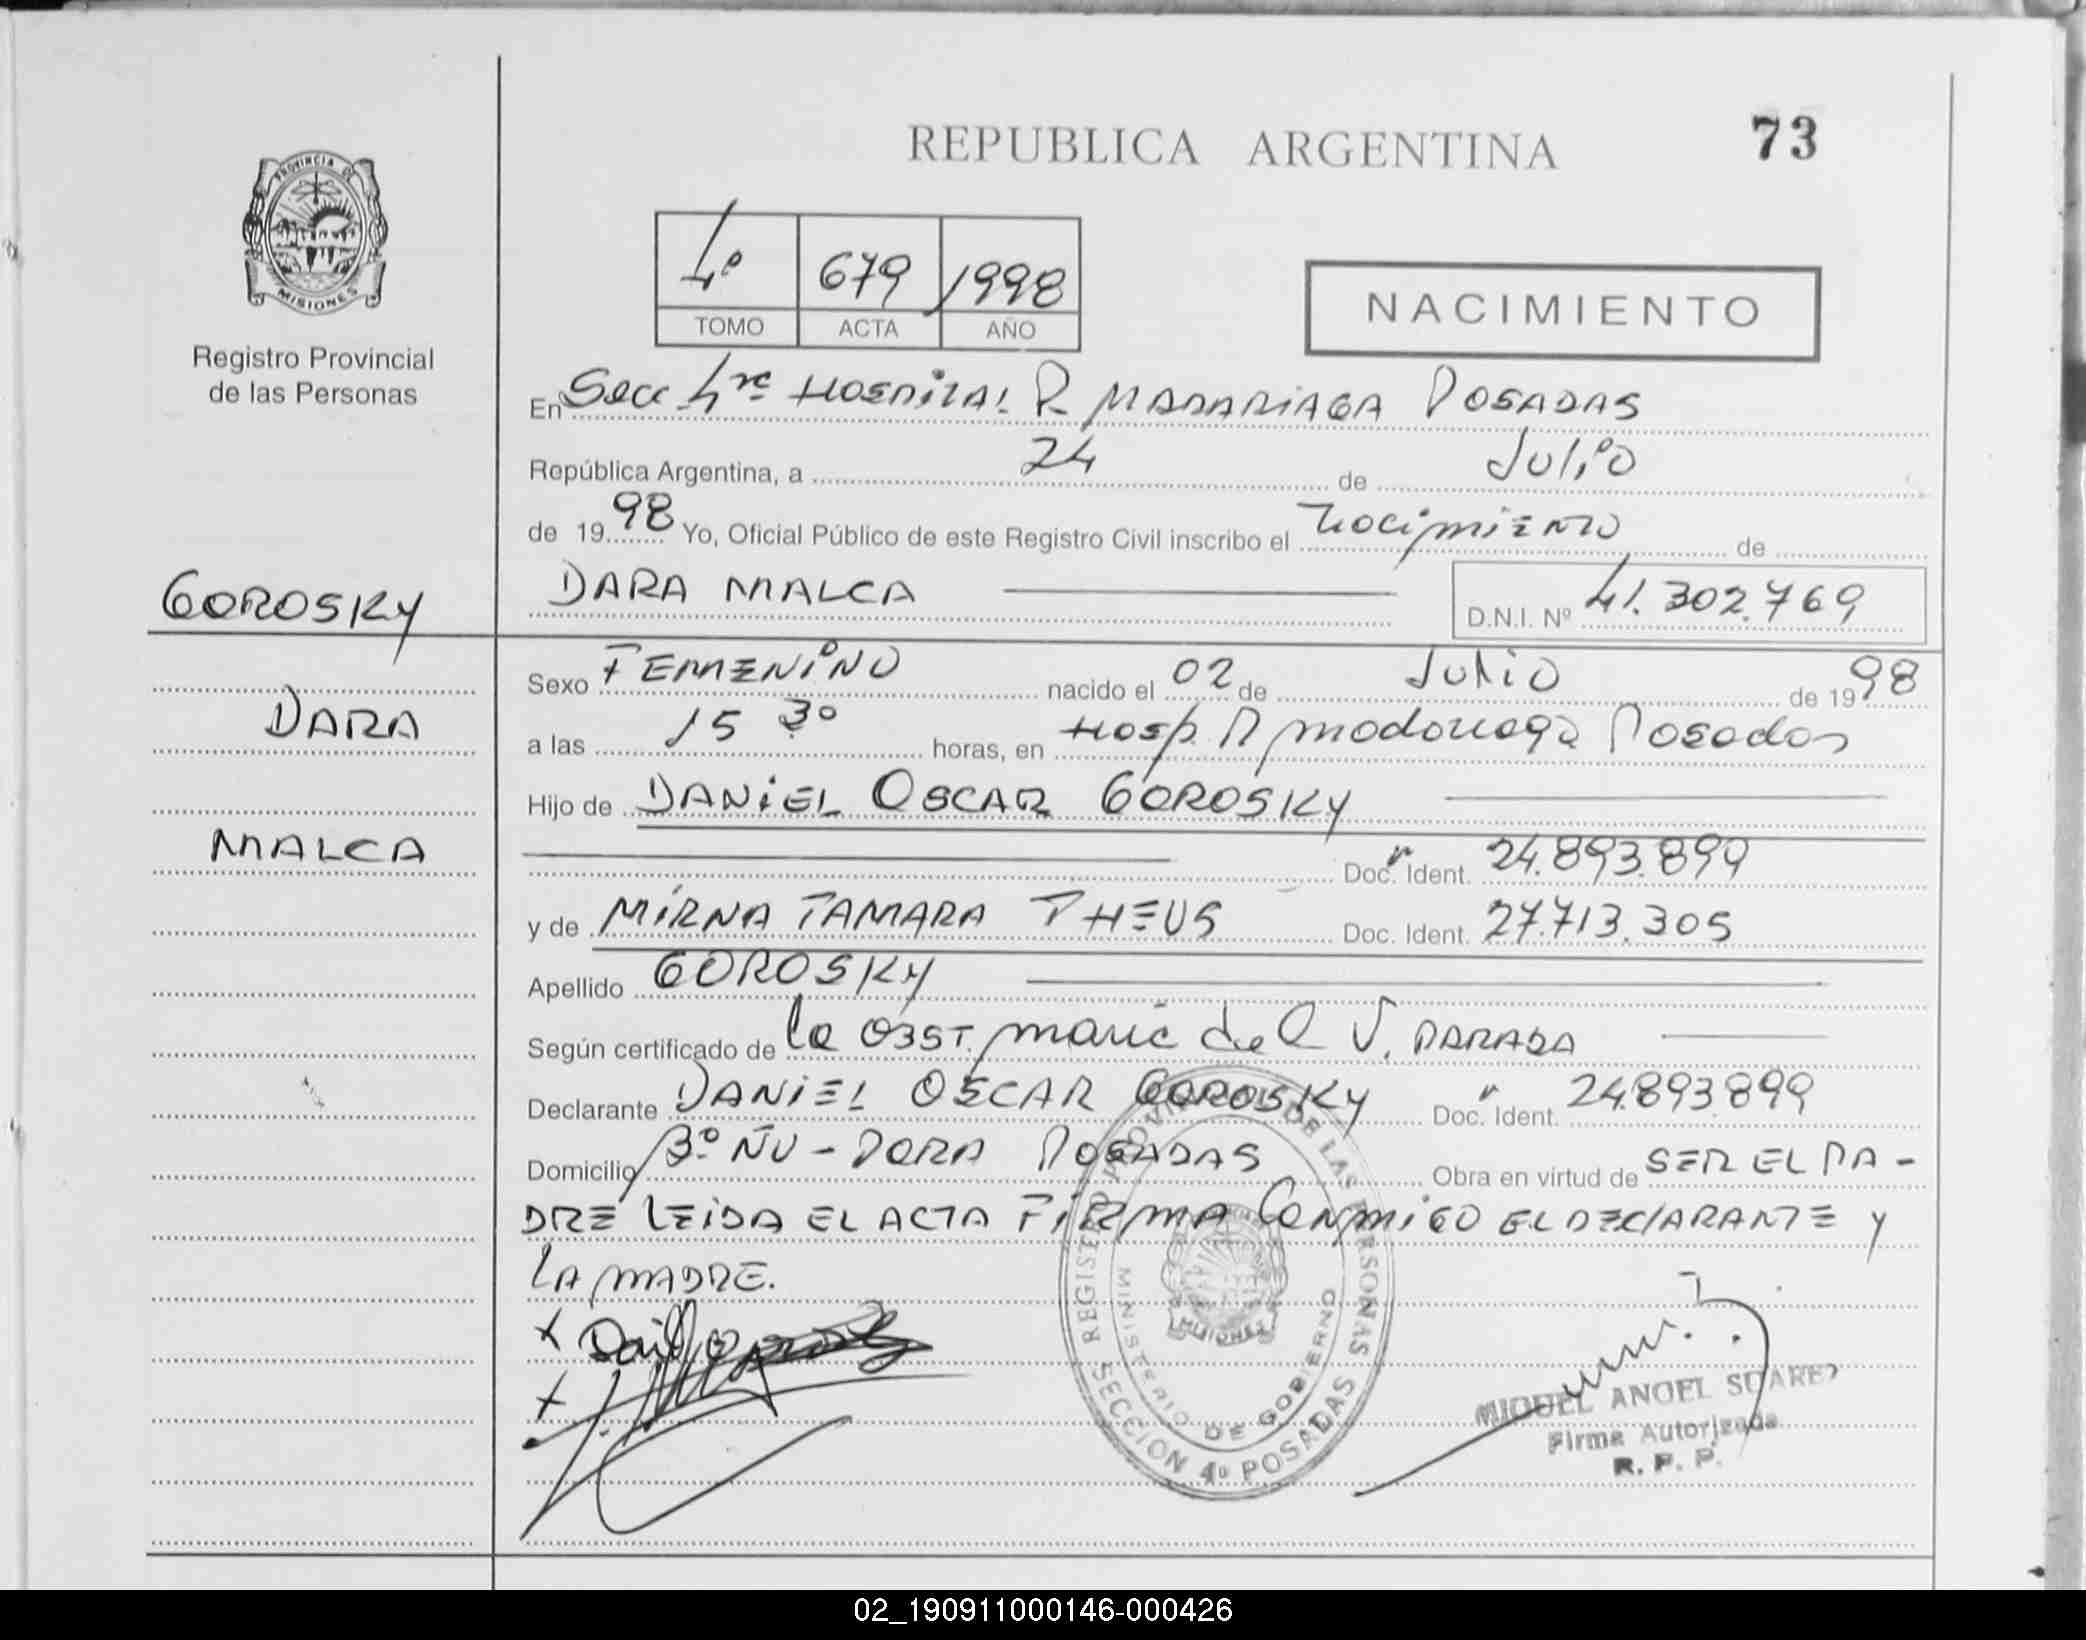 REPUBLICA ARGENTINA
73
PROVINCIA DE
MISIONES
Registro Provincial
de las Personas
4º 679 1998
TOMO ACTA AÑO
NACIMIENTO
En Secc 4ta HOSPITAL R MADARIAGA POSADAS
República Argentina, a 24 de Julio
de 1998 Yo, Oficial Público de este Registro Civil inscribo el nacimiento de
GOROSKY
DARA MALCA
D.N.I. Nº 41.302.769
DARA
MALCA
Sexo FEMENINO nacido el 02 de Julio de 1998
a las 15 30 horas, en Hosp. R madariaga Posadas
Hijo de DANIEL OSCAR GOROSKY
Doc. Ident. 24.893.899
y de MIRNA TAMARA THEUS Doc. Ident. 27.713.305
Apellido GOROSKY
Según certificado de la OBST. maria del V. PARADA
Declarante DANIEL OSCAR GOROSKY Doc. Ident. 24.893.899
Domicilio Bº ÑU - PORA POSADAS Obra en virtud de SER EL PA -
DRE LEIDA EL ACTA FIRMA CONMIGO EL DECLARANTE y
LA MADRE.
REGISTRO PROVINCIAL DE LAS PERSONAS
MINISTERIO DE GOBIERNO
MISIONES
SECCION 4º POSADAS
MIGUEL ANGEL SUAREZ
Firma Autorizada
R. P. P.
02_190911000146-000426